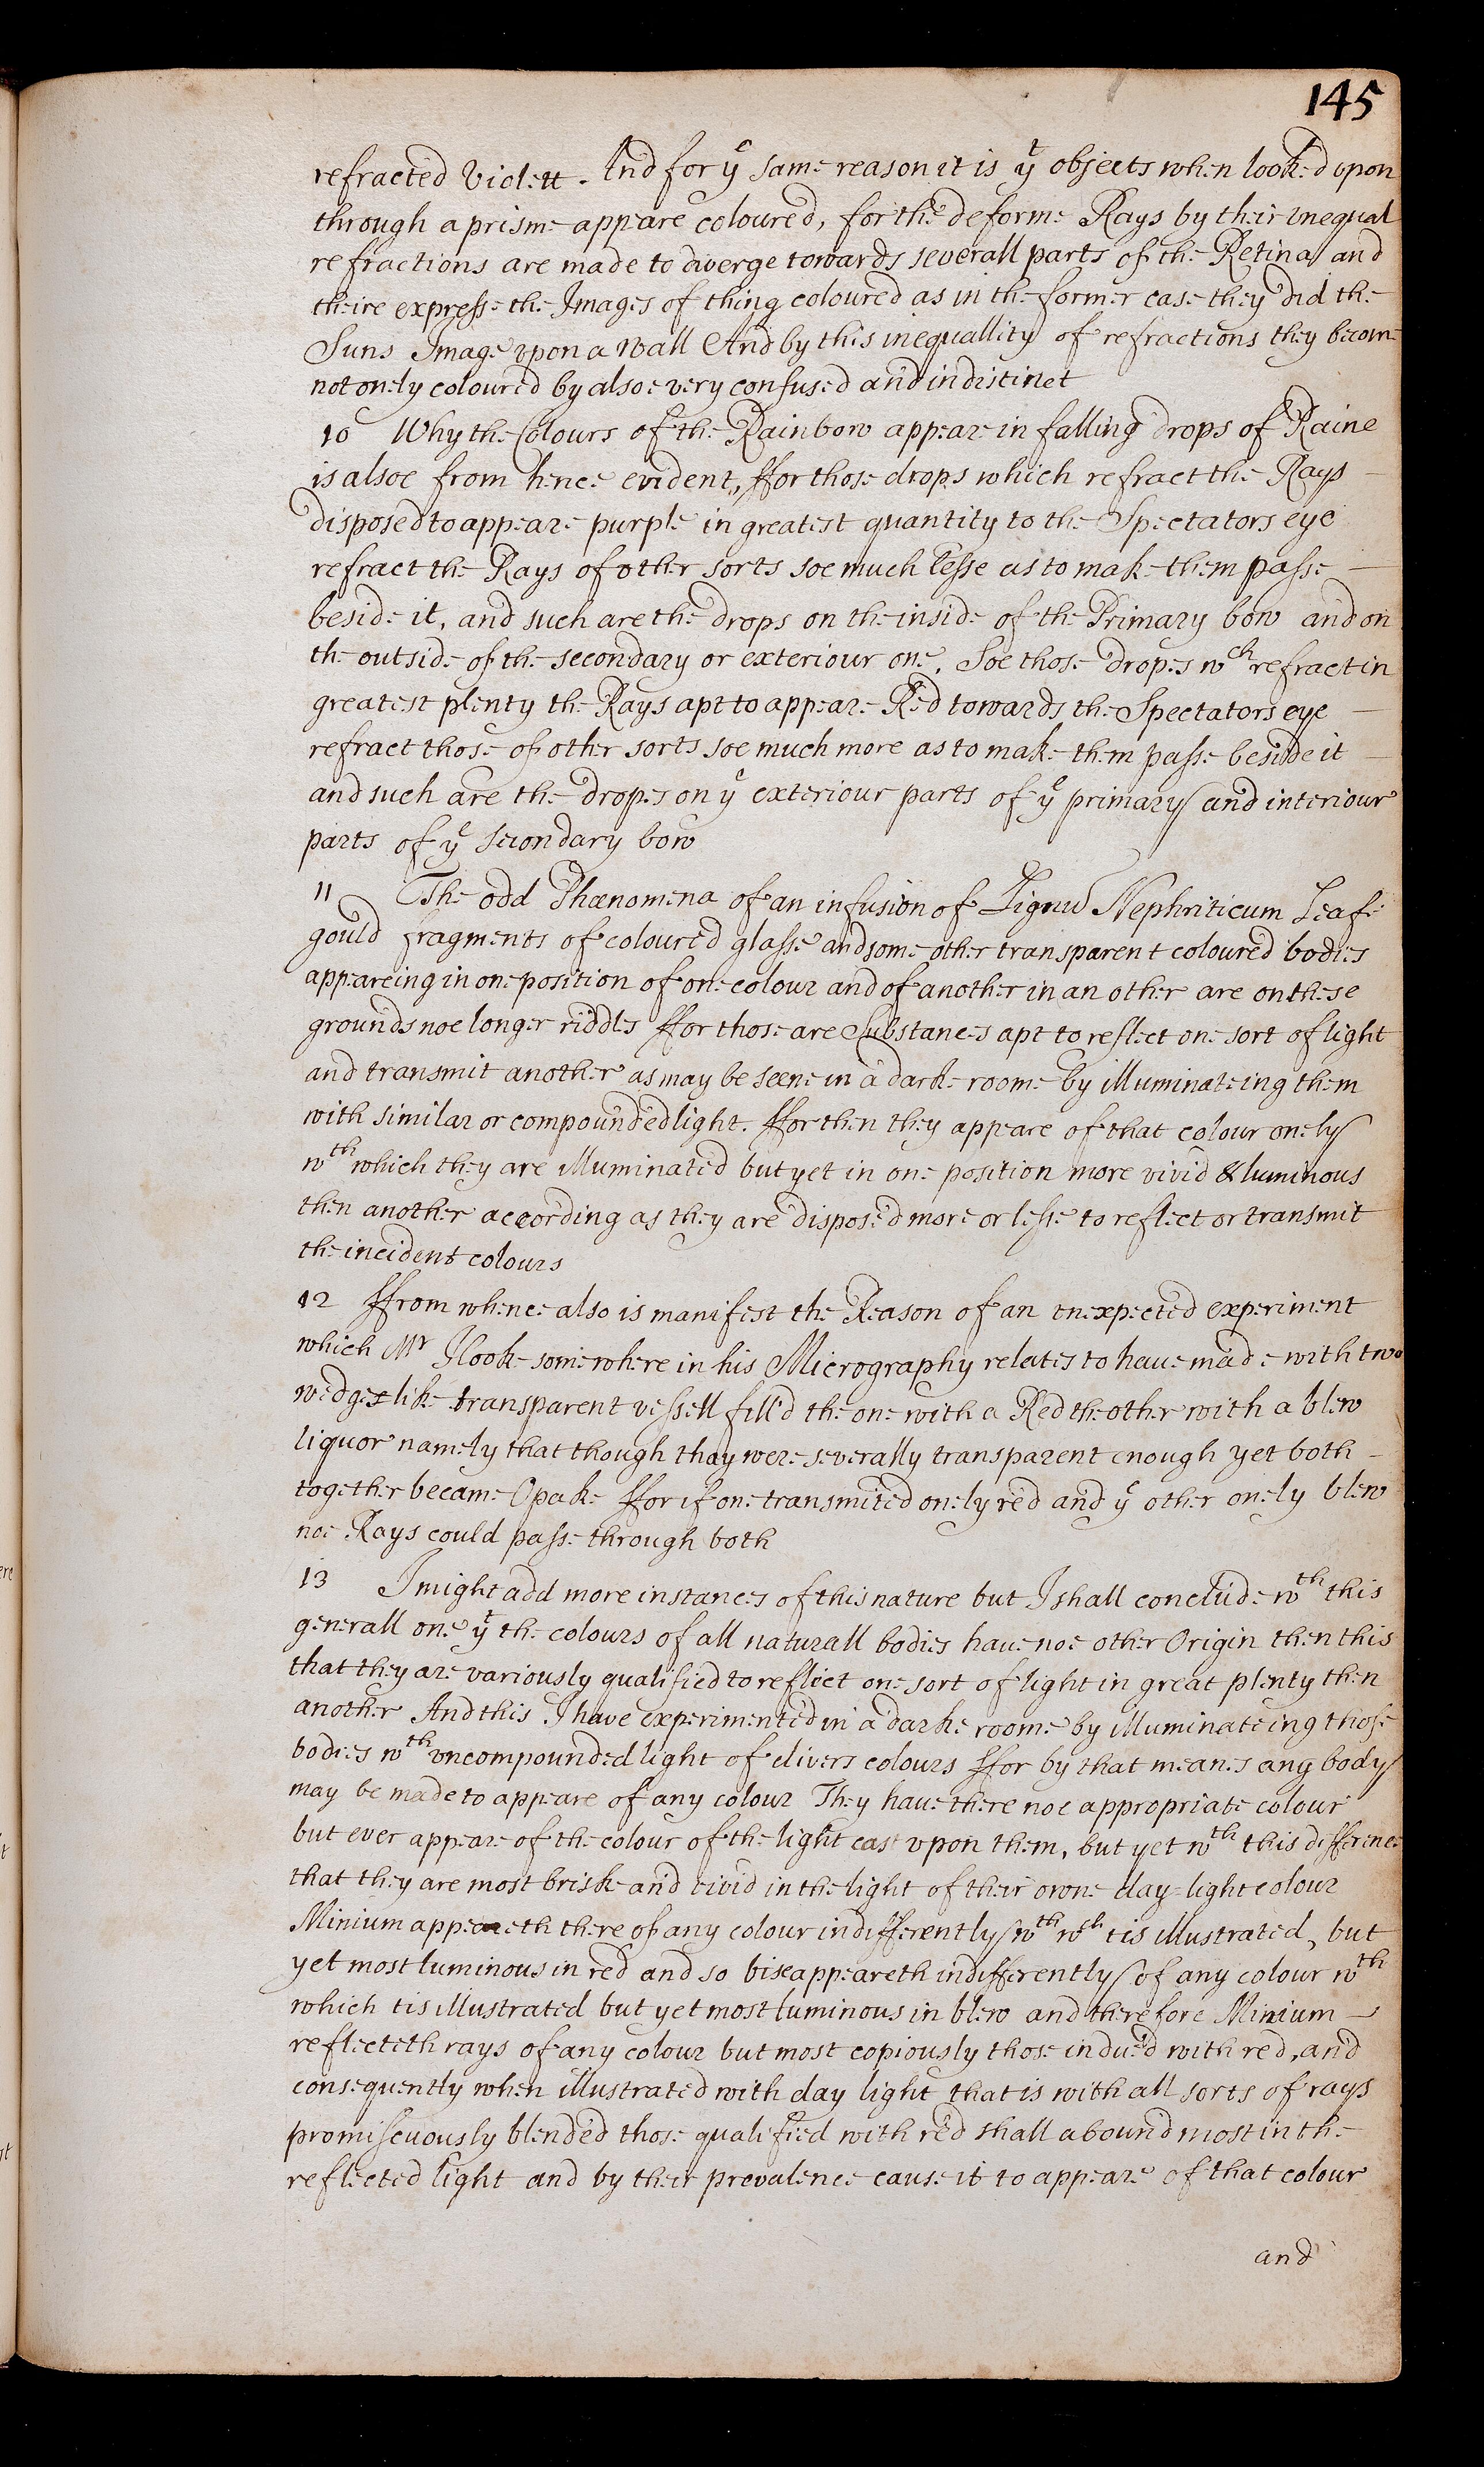 145
refracted Violett. And for yͤ same reason it is yᵗ objects when looked vpon
through a prisme appeare coloured, for the deforme Rays by their vnequal
refractions are made to diverge towards severall parts of the Retina and
theire expresse the Images of thing coloured as in the former case they did the
Suns Image vpon a Wall And by this inequallity of refractions they become
not onely coloured by alsoe very confused and indistinct
10 Why the Colours of the Rainbow appeare in falling drops of Raine
is alsoe from hence evident, ffor those drops which refract the Rays
disposed to appeare purple in greatest quantity to the Spectators eye
refract the Rays of other sorts soe much lesse as to make them passe
beside it, and such are the drops on the inside of the Primary bow and on
the outside of the secondary or exteriour one. Soe those dropes wᶜʰ refract in
greatest plenty the Rays apt to appeare Red towards the Spectators eye
refract those of other sorts soe much more as to make them passe beside it
and such are the dropes on yͤ exteriour parts of yͤ primary and interiour
parts of yͤ secondary bow
11 The odd Phænomena of an infusion of Lignū Nephriticum Leafe
gould fragments of coloured glasse and some other transparent coloured bodies
appeareing in one position of one colour and of another in an other are on these
grounds noe longer riddles ffor those are Substances apt to reflect one sort of light
and transmit another as may be seene in a darke roome by illuminateing them
with similar or compounded light. ffor then they appeare of that colour onely
wᵗʰ which they are illuminated but yet in one position more vivid & luminous
then another according as they are disposed more or lesse to reflect or transmit
the incident colours
12 ffrom whence also is manifest the Reason of an vnexpected experiment
which Mʳ Hooke somewhere in his Micrography relates to have made with two
wedges like transparent vessell fill'd the one with a Red the other with a blew
liquor namely that though thay were severally transparent enough yet both
together became Opake ffor if one transmited onely red and yͤ other onely blew
noe Rays could passe through both
13 I might add more instances of this nature but I shall conclude wᵗʰ this
generall one yᵗ the colours of all naturall bodies have noe other Origin then this
that they are variously qualified to reflect one sort of light in great plenty then
another And this I have experimented in a darke roome by illuminateing those
bodies wᵗʰ vncompounded light of divers colours ffor by that meanes any body
may be made to appeare of any colour They have there noe appropriate colour
but ever appeare of the colour of the light cast vpon them, but yet wᵗʰ this difference
that they are most briske and vivid in the light of their owne day-light colour
Minium appeareth there of any colour indifferently wᵗʰ wᶜʰ tis illustrated, but
yet most luminous in red and so bise appeareth indifferently of any colour wᵗʰ
which tis illustrated but yet most luminous in blew and therefore Minium
reflecteth rays of any colour but most copiously those indued with red, and
consequently when illustrated with day light that is with all sorts of rays
promiscuously blended those qualified with red shall abound most in the
reflected light and by their prevalence cause it to appeare of that colour
and